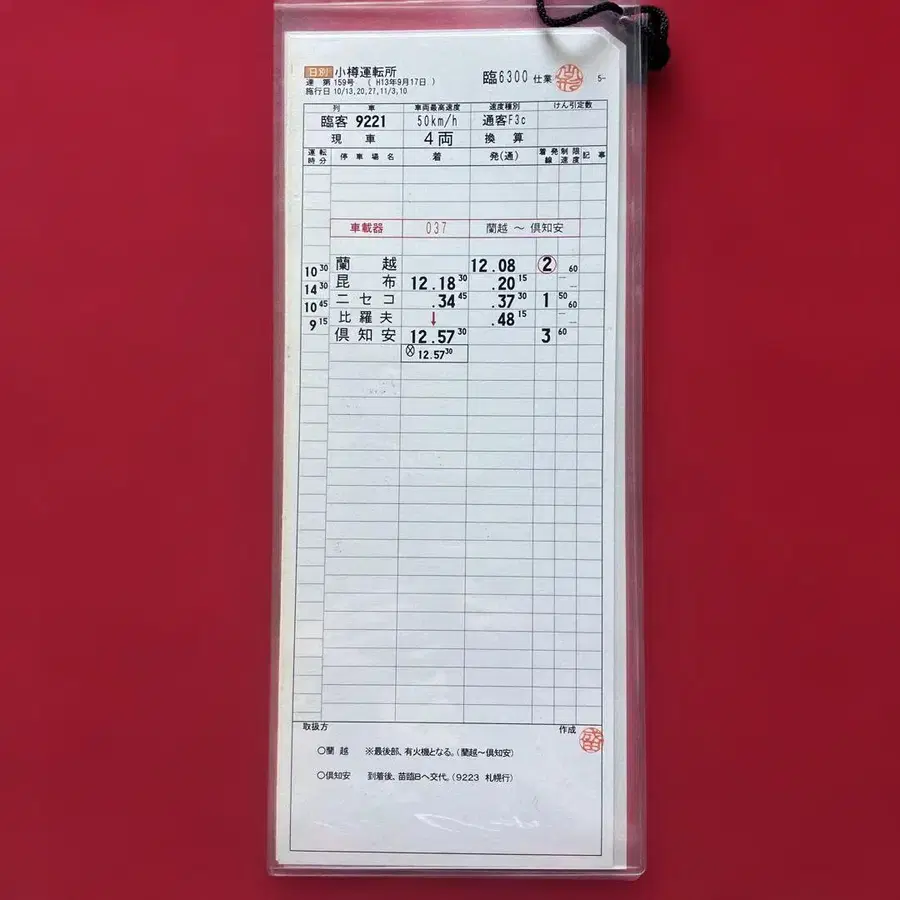 日別 小樽運転所 臨6300 仕業 5-
達 第 159号 ( H13年9月17日 )
施行日 10/13,20,27,11/3,10
列車 車両最高速度 速度種別 けん引定数
臨客 9221 50km/h 通客F3c
現車 4両 換算
運転時分 停車場名 着 発(通) 着発線 制限速度 記事
車載器 037 蘭越 ～ 倶知安
蘭越 12.08 ② 60
10 30
昆布 12.18 30 .20 15 － －
14 30
ニセコ .34 45 .37 30 1 50 60
10 45
比羅夫 ↓ .48 15 － －
9 15
倶知安 12.57 30 3 60
Ⓧ 12.57 30
取扱方 作成
○蘭越 ※最後部、有火機となる。(蘭越～倶知安)
○倶知安 到着後、苗臨Bへ交代。(9223 札幌行)